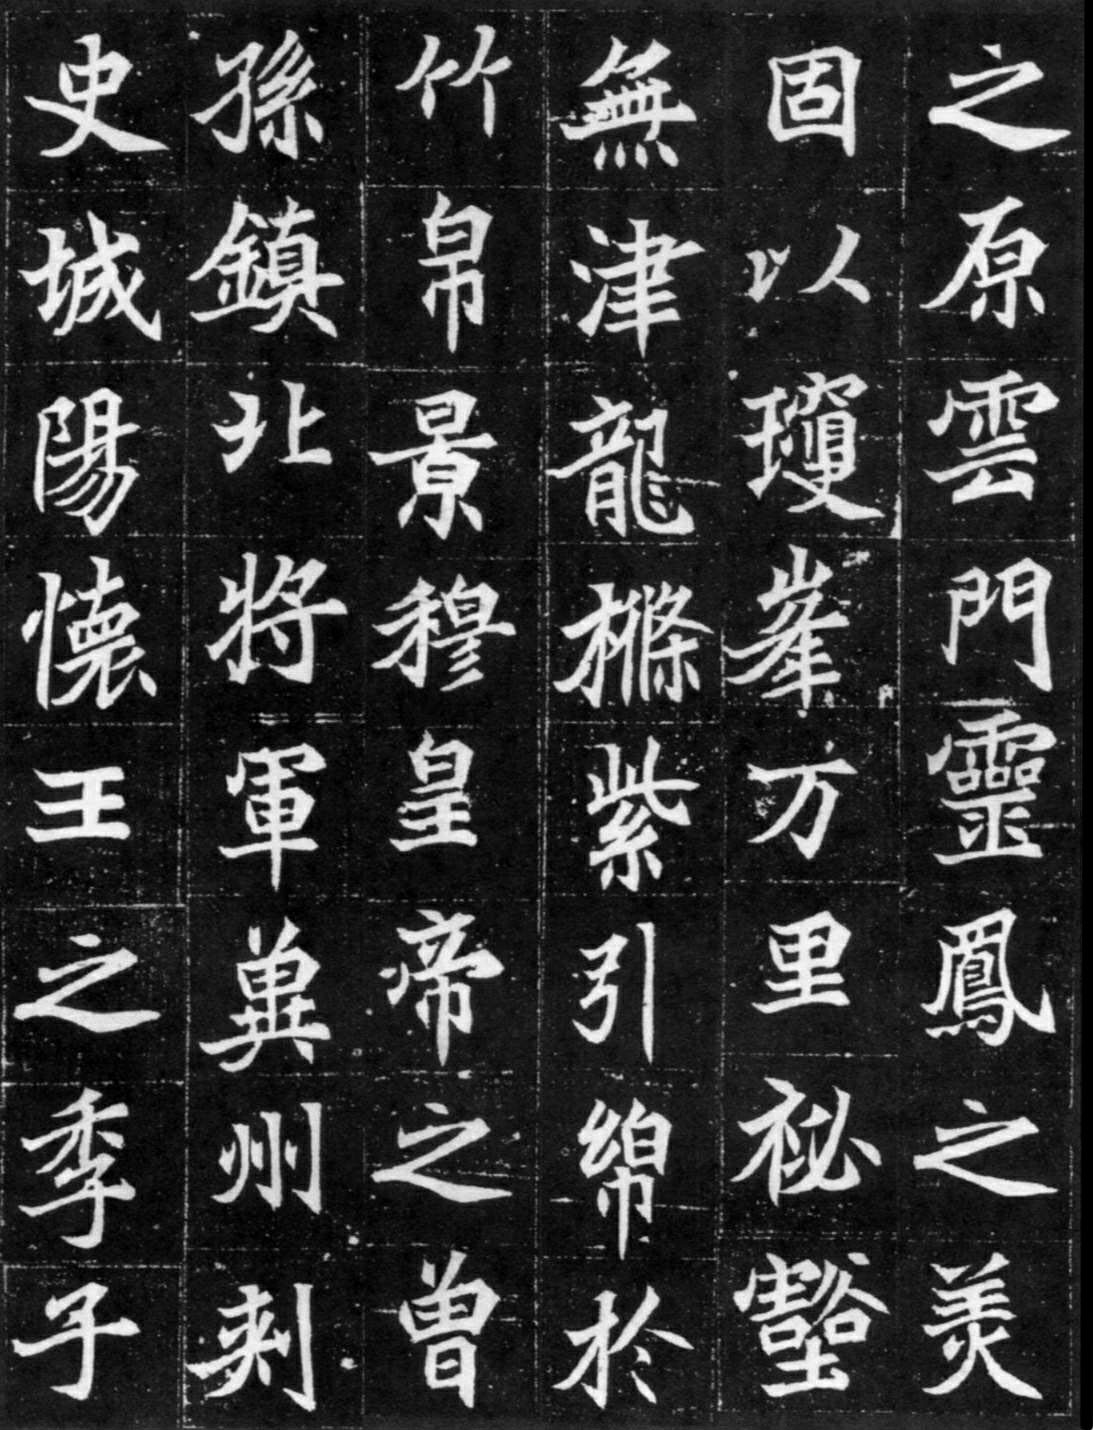 之原雲門靈鳳之美
固以瓊峯万里祕壑
無津龍樤紫引綿於
竹帛景穆皇帝之曾
孫鎮北將軍冀州刺
史城陽懷王之季子